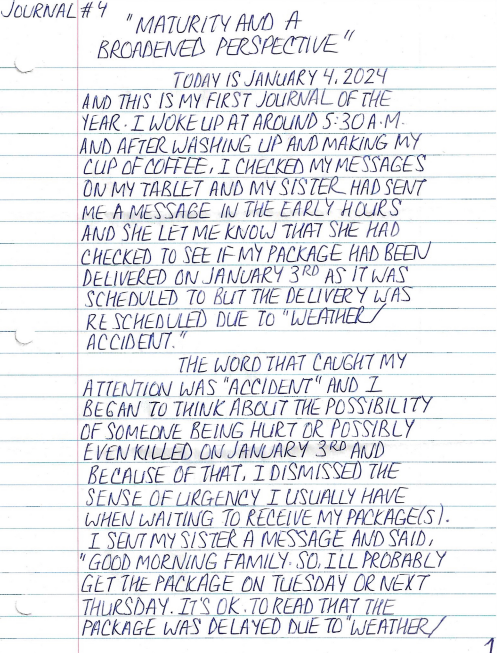 JOURNAL #4
"MATURITY AND A
BROADENED PERSPECTIVE"
TODAY IS JANUARY 4, 2024
AND THIS IS MY FIRST JOURNAL OF THE
YEAR. I WOKE UP AT AROUND 5:30 A.M.
AND AFTER WASHING UP AND MAKING MY
CUP OF COFFEE, I CHECKED MY MESSAGES
ON MY TABLET AND MY SISTER HAD SENT
ME A MESSAGE IN THE EARLY HOURS
AND SHE LET ME KNOW THAT SHE HAD
CHECKED TO SEE IF MY PACKAGE HAD BEEN
DELIVERED ON JANUARY 3RD AS IT WAS
SCHEDULED TO BUT THE DELIVERY WAS
RESCHEDULED DUE TO "WEATHER/
ACCIDENT."
THE WORD THAT CAUGHT MY
ATTENTION WAS "ACCIDENT" AND I
BEGAN TO THINK ABOUT THE POSSIBILITY
OF SOMEONE BEING HURT OR POSSIBLY
EVEN KILLED ON JANUARY 3RD AND
BECAUSE OF THAT, I DISMISSED THE
SENSE OF URGENCY I USUALLY HAVE
WHEN WAITING TO RECEIVE MY PACKAGE(S).
I SENT MY SISTER A MESSAGE AND SAID,
"GOOD MORNING FAMILY. SO, ILL PROBABLY
GET THE PACKAGE ON TUESDAY OR NEXT
THURSDAY. IT'S OK. TO READ THAT THE
PACKAGE WAS DELAYED DUE TO "WEATHER/
1